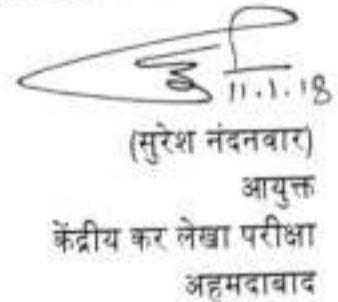 11.1.18
(सुरेश नंदनवार)
आयुक्त
केंद्रीय कर लेखा परीक्षा
अहमदाबाद